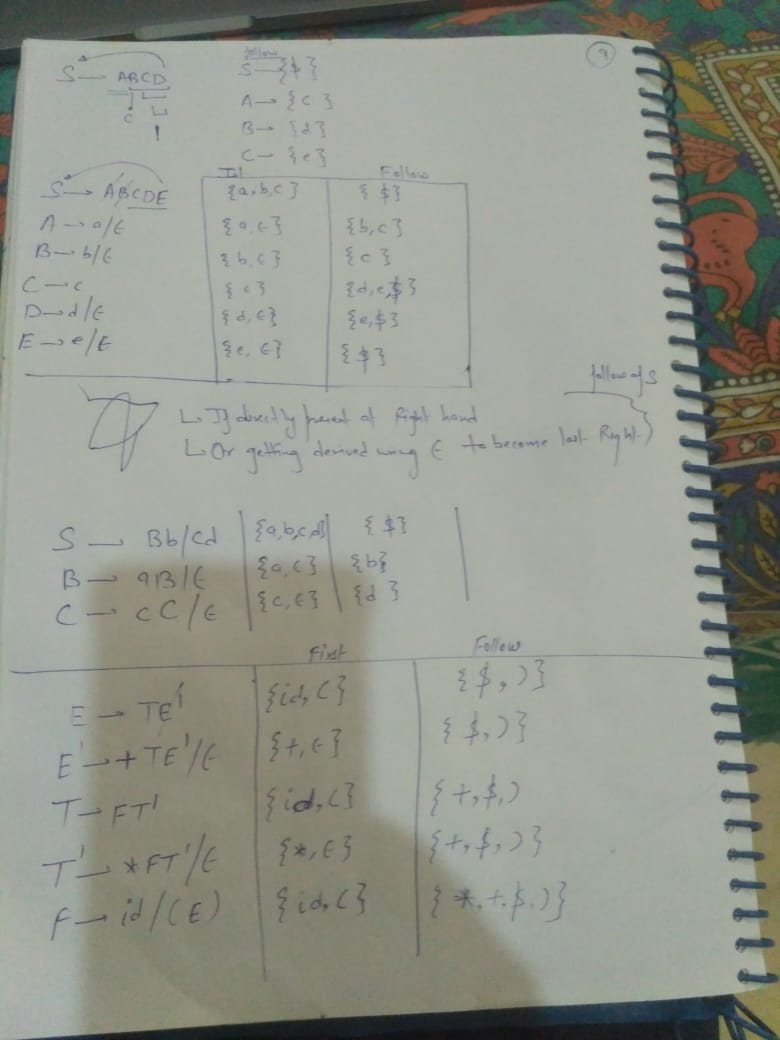 9
follow
S → ABCD S → {$}
C A → {c}
B → {d}
C → {e}
1st Follow
S → ABCDE {a,b,c} {$}
A → a/ε {a,ε} {b,c}
B → b/ε {b,ε} {c}
C → c {c} {d,e,$}
D → d/ε {d,ε} {e,$}
E → e/ε {e,ε} {$}
follow of S
↳ If directly present at Right hand
↳ Or getting derived using ε to become last Right
S → Bb/Cd {a,b,c,d} {$}
B → aB/ε {a,ε} {b}
C → cC/ε {c,ε} {d}
First Follow
E → TE' {id,(} {$,)}
E' → +TE'/ε {+,ε} {$,)}
T → FT' {id,(} {+,$,)
T' → *FT'/ε {*,ε} {+,$,)}
F → id/(E) {id,(} {*,+,$,)}